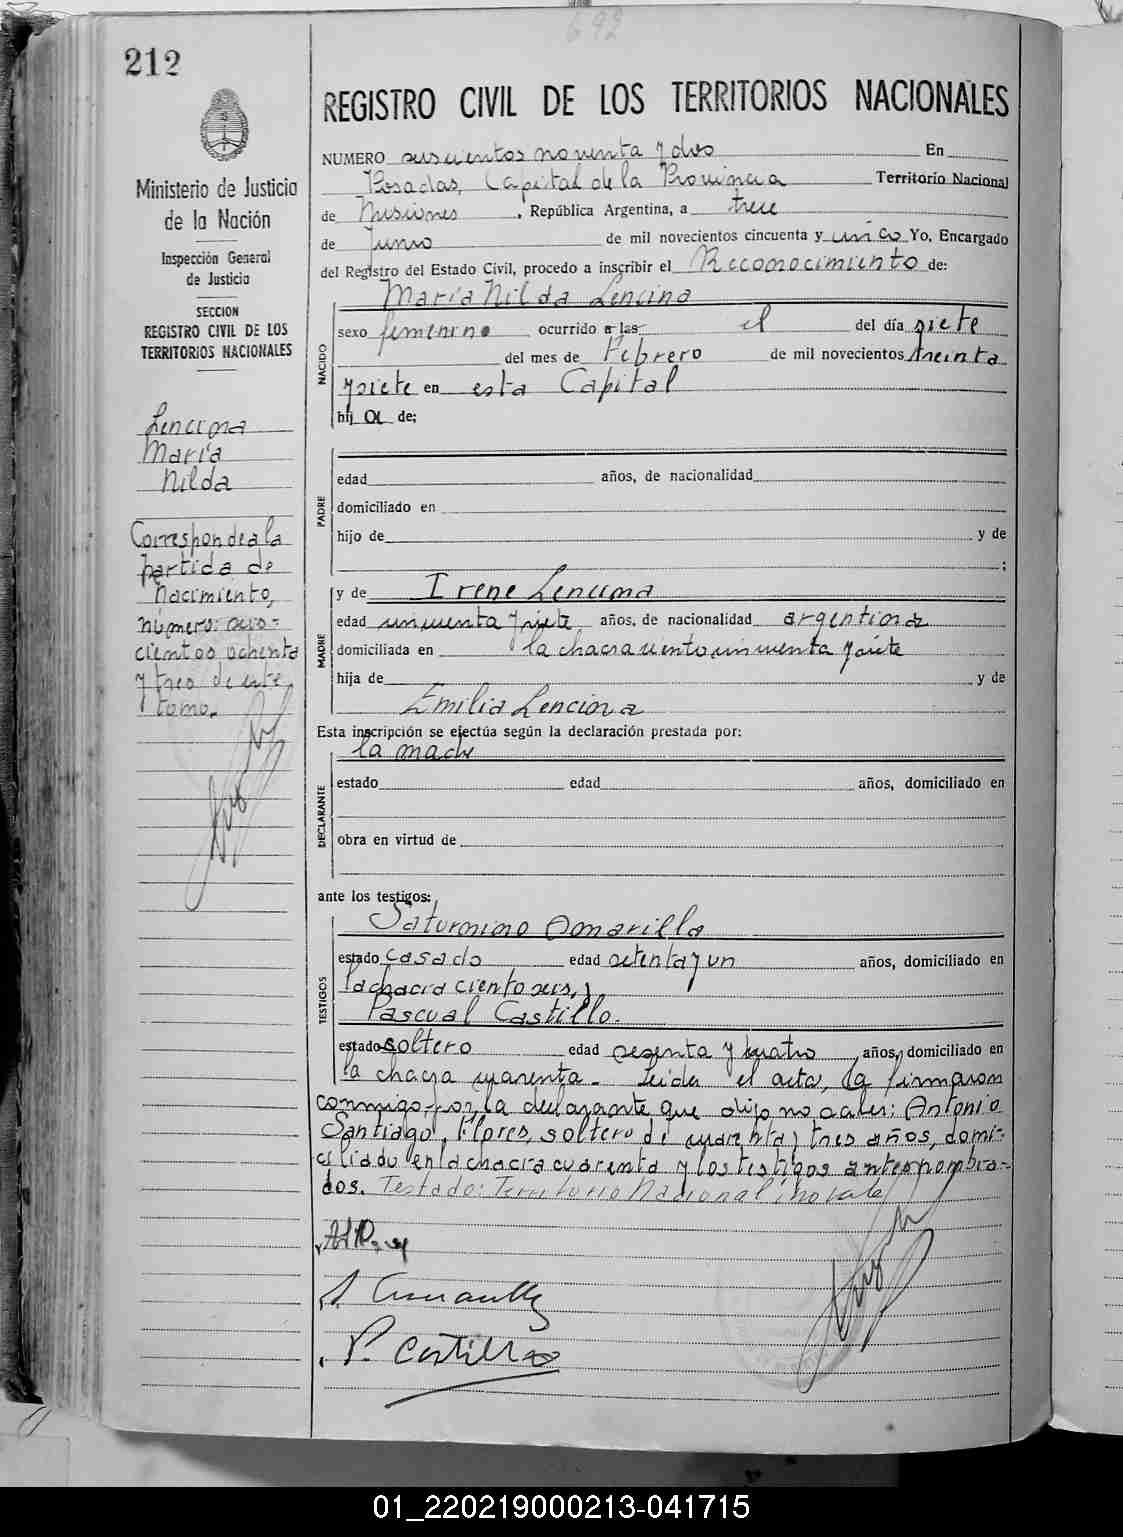 692
212
REGISTRO CIVIL DE LOS TERRITORIOS NACIONALES
Ministerio de Justicia
de la Nación
Inspección General
de Justicia
SECCION
REGISTRO CIVIL DE LOS
TERRITORIOS NACIONALES
Lencina
María
Nilda
Corresponde a la
partida de
nacimiento,
número: seis-
cientos ochenta
y tres de este
tomo.
NUMERO seiscientos noventa y dos En
Posadas, Capital de la Provincia Territorio Nacional
de Misiones, República Argentina, a trece
de Junio de mil novecientos cincuenta y cinco Yo, Encargado
del Registro del Estado Civil, procedo a inscribir el Reconocimiento de:
María Nilda Lencina
NACIDO
sexo femenino ocurrido a las el del día siete
del mes de Febrero de mil novecientos treinta
y siete en esta Capital
hij a de;
PADRE
edad años, de nacionalidad
domiciliado en
hijo de y de
;
MADRE
y de Irene Lencina
edad cincuenta y siete años, de nacionalidad argentina
domiciliada en la chacra ciento cincuenta y siete
hija de y de
Emilia Lencina
Esta inscripción se efectúa según la declaración prestada por:
la madre
DECLARANTE
estado edad años, domiciliado en
obra en virtud de
ante los testigos:
TESTIGOS
Saturnino Amarilla
estado casado edad setenta y un años, domiciliado en
la chacra ciento seis, y
Pascual Castillo.
estado soltero edad sesenta y cuatro años, domiciliado en
la chacra cuarenta - Leida el acta, la firmaron
conmigo, por la declarante que dijo no saber: Antonio
Santiago Flores, soltero de cuarenta y tres años, domi-
ciliado en la chacra cuarenta y los testigos antes nombra-
dos. Testado: Territorio Nacional: no vale
S. Amarilla
P. Castillo
01_220219000213-041715